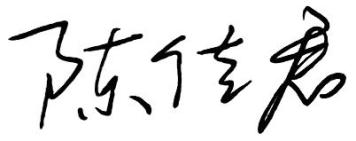 陈佳君